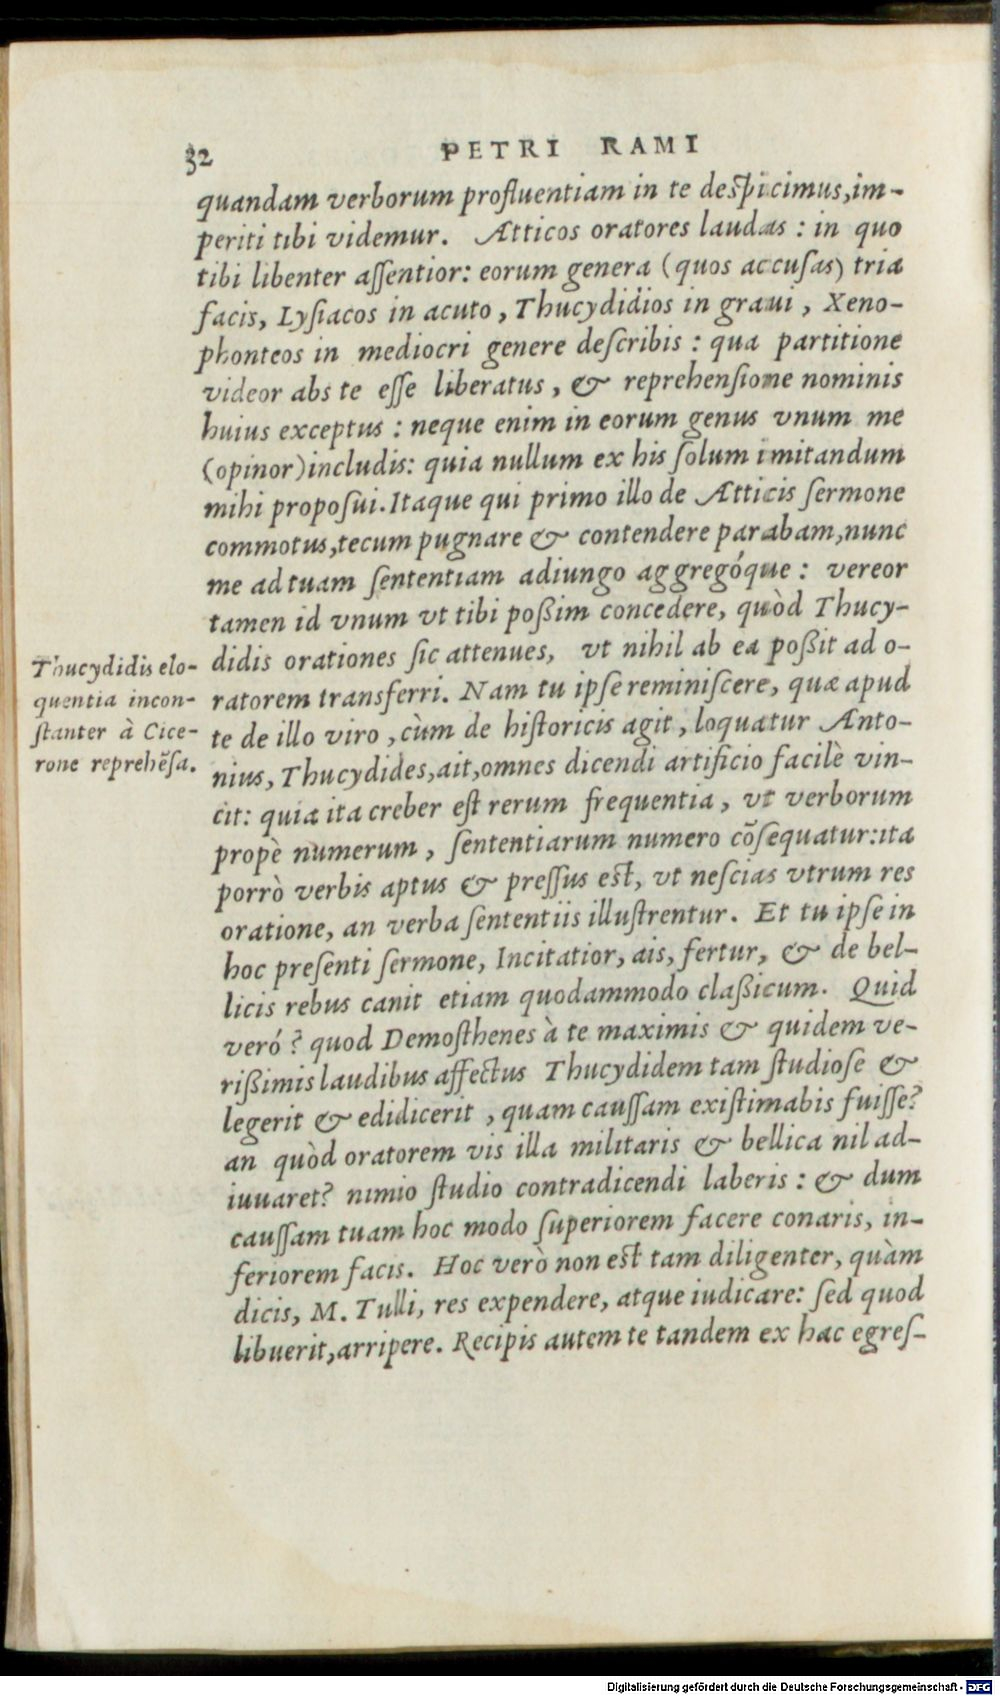 32 PETRI RAMI
quandam verborum profluentiam in te despicimus, im-
periti tibi videmur. Atticos oratores laudas : in quo
tibi libenter aſſentior: eorum genera (quos accuſas) tria
facis, Lyſiacos in acuto, Thucydidios in graui, Xeno-
phonteos in mediocri genere deſcribis : qua partitione
videor abs te eſſe liberatus, & reprehenſione nominis
huius exceptus : neque enim in eorum genus vnum me
(opinor) includis: quia nullum ex his ſolum imitandum
mihi propoſui. Itaque qui primo illo de Atticis ſermone
commotus, tecum pugnare & contendere parabam, nunc
me ad tuam ſententiam adiungo aggregóque : vereor
tamen id vnum vt tibi poßim concedere, quòd Thucy-
didis orationes ſic attenues, vt nihil ab ea poßit ad o-
ratorem transferri. Nam tu ipſe reminiſcere, quæ apud
te de illo viro, cùm de hiſtoricis agit, loquatur Anto-
nius, Thucydides, ait, omnes dicendi artificio facilè vin-
cit: quia ita creber eſt rerum frequentia, vt verborum
propè numerum, ſententiarum numero cõſequatur: ita
porrò verbis aptus & preſſus eſt, vt neſcias vtrum res
oratione, an verba ſententiis illuſtrentur. Et tu ipſe in
hoc preſenti ſermone, Incitatior, ais, fertur, & de bel-
licis rebus canit etiam quodammodo claßicum. Quid
veró? quod Demoſthenes à te maximis & quidem ve-
rißimis laudibus affectus Thucydidem tam ſtudioſe &
legerit & edidicerit, quam cauſſam exiſtimabis fuiſſe?
an quòd oratorem vis illa militaris & bellica nil ad-
iuuaret? nimio ſtudio contradicendi laberis : & dum
cauſſam tuam hoc modo ſuperiorem facere conaris, in-
feriorem facis. Hoc verò non eſt tam diligenter, quàm
dicis, M. Tulli, res expendere, atque iudicare: ſed quod
libuerit, arripere. Recipis autem te tandem ex hac egreſ-
Thucydidis elo-
quentia incon-
ſtanter à Cice-
rone reprehẽſa.
Digitalisierung gefördert durch die Deutsche Forschungsgemeinschaft - DFG